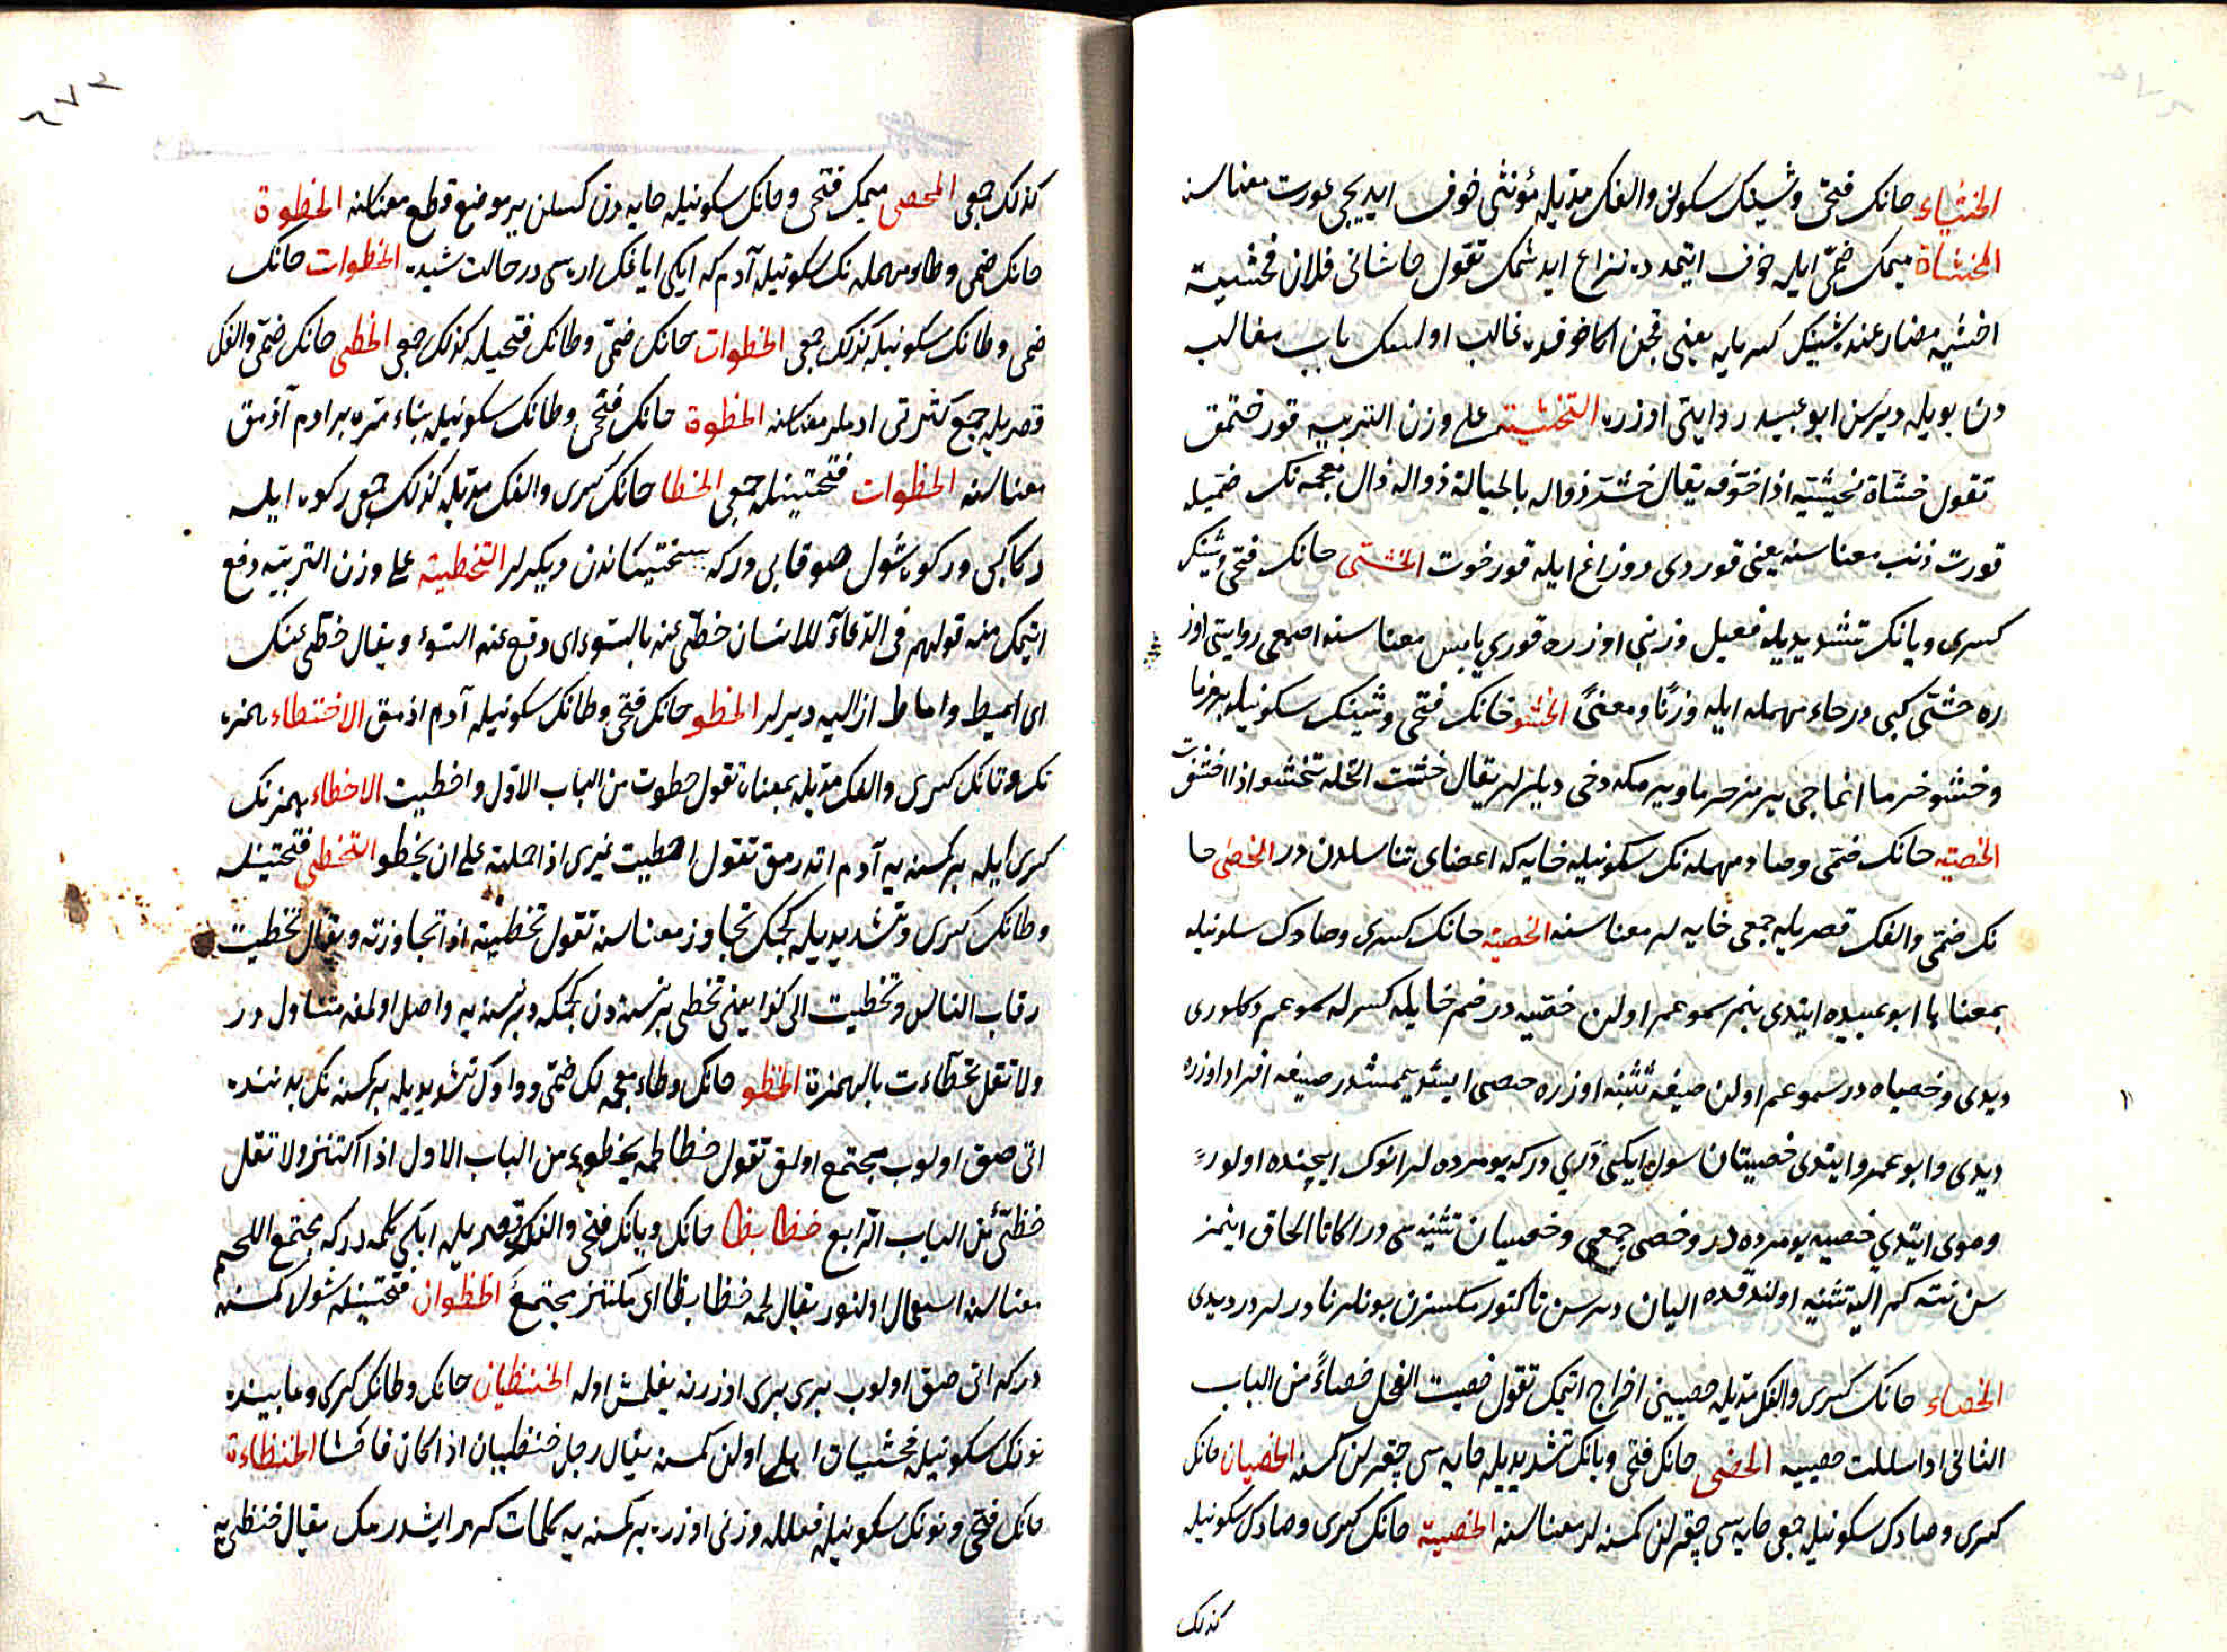 الخشياء خانك فتحى وشينك سكونى والفك مديله مؤنثى خوف ايديجى عورت معناسنه
المخشاة ميمك ضمى ايله خوف ايتمده نزاع ايدشمك تقول خاشانى فلان فخشيته
اخشيه مضارعنده شينك كسريله يعنى قچن اكا خوفده غالب اولسك باب مغالبه
دن بويله ديرسن ابو عبيد روايتى اوزره التخشية على وزن التربيه قورختمق
تقول خشاة تخشيته اذا خوفه يقال خشّ ذواله بالحبالة ذواله ذال معجمه نك ضميله
قورت ذئب معناسنه يعنى قوردى دوزاغ ايله قورخوت الخشى خانك فتحى وشينك
كسرى ويانك تشديديله فعيل وزنى اوزره قورى يابس معناسنه اصمعى روايتى اوز
ره حشى كبى در حاء مهمله ايله وزنًا ومعنىً الخشو خانك فتحى وشينك سكونيله يرمز خرما
وخشو خرما اغاجى يرمز خرما ويرمكه دخى ديلر لر يقال خشت النخلة تخشو اذا اخشفت
الخصية خانك ضمى وصاد مهمله نك سكونيله خايه كه اعضاى تناسلدن در الخصى خا
نك ضمى والفك قصريله جمعى خايه لر معناسنه الخصية خانك كسرى وصادك سكونيله
بمعناها ابو عبيده ايتدى بنم سموعم اولان خصيه در ضم خايله كسرله سموعم دكلدرى
ديدى وخصياه در سموعم اولن صيغه تثنيه اوزره خصى ايشديلمشدر صيغه افراد اوزره
ديدى وابو عمرو ايتدى خصيتان سول ايكى درى دركه يومرده لر انوك ايچنده اولور
وموى ايتدى خصيه يومرده در وخصى جمعى وخصيان تثنيه سى در اكا تا الحاق اينمز
سن نته كه اليه تثنيه اولندقده اليان ديرسن تا كتورمكسزن بونلر نادرلردر ديدى
الخصاء خانك كسرى والفك مديله خصيينى اخراج اتمك تقول خصيت الفحل خصاءً من الباب
الثانى اذا سللت خصييه الخصى خانك فتحى ويانك تشديديله خايه سى چقرلن كمسنه الخصيان خانك
كسرى وصادك سكونيله جمعى خايه سى چقرلن كمسنه لر معناسنه الخصية خانك كسرى وصادك سكونيله
كذلك
٢٧٢
كذلك جمعى المخصى ميمك فتحى وخانك سكونيله خايه دن كسلن ير موضع قطع معناسنه الخطوة
خانك ضمى وطاء مهمله نك سكونيله آدم كه ايكى اياغك اره سى در حالت مشيده الخطوات خانك
ضمى وطانك سكونيله كذلك جمعى الخطوات خانك ضمى وطانك فتحيله كذلك جمعى الخطى خانك ضمى والفك
قصريله جمع كثرتى ادملر معناسنه الخطوة خانك فتحى وطانك سكونيله بناء مره بر ادم آذمق
معناسنه الخطوات فتحتينله جمعى الخطا خانك كسرى والفك مديله كذلك جمعى ركوه ايله
ركا كبى در ركوه شول صو قابى در كه سختيكاندن ديكرلر التخطية على وزن التربية دفع
اتمك منه قولهم فى الدعاء للانسان خطّى عنه بالسوء اى دفع عنه السوء ويقال خطّى عنك
اى اميط واماط ازاله ديرلر الخطو خانك فتحى وطانك سكونيله آدم اذمق الاختطاء همزه
نك وتانك كسرى والفك مديله بمعناه تقول خطوت من الباب الاول واخطيت الاخطاء همزنك
كسرى ايله بر كمسنه يه آدم اتدرمق تقول اخطيت غيرى اذا حملته على ان يخطو التخطى فتحتينله
وطانك كسرى وتشديديله كچمك تجاوز معناسنه تقول تخطيته اذا تجاوزته ويقال تخطيت
رقاب الناس وتخطيت الى كذا يعنى تخطى بر نسنه دن كچمكه وبر نسنه يه واصل اولمغه متناول در
ولا تقل تخطّاءت بالهمزة الخظو خانك وظاء معجمه نك ضمى وواوك تشديديله بر كمسنه نك بدننده
اتى صق اولوب مجتمع اولمق تقول خظا لحمه يخظو من الباب الاول اذا اكتنز ولا تقل
خظى من الباب الرابع خظا بظا خانك وبانك فتحى والفك قصريله ايكى كلمه در كه مجتمع اللحم
معناسنه استعمال اولنور يقال لحمه خظا بظا اى مكتنز مجتمع الخظوان فتحتينله شول كمسنه
در كه اتى صق اولوب برى برى اوزرنه يغلمش اوله الخنظيان خانك وظانك كسرى وما بينده
نونك سكونيله فحشيات اهلى اولن كمسنه يقال رجل خنظيان اذا كان فاحشا الخنظاءة
خانك فتحى ونونك سكونيله فعلله وزنى اوزره بر كمسنه يه كلمات كريه ايشدرمك يقال خنظى به